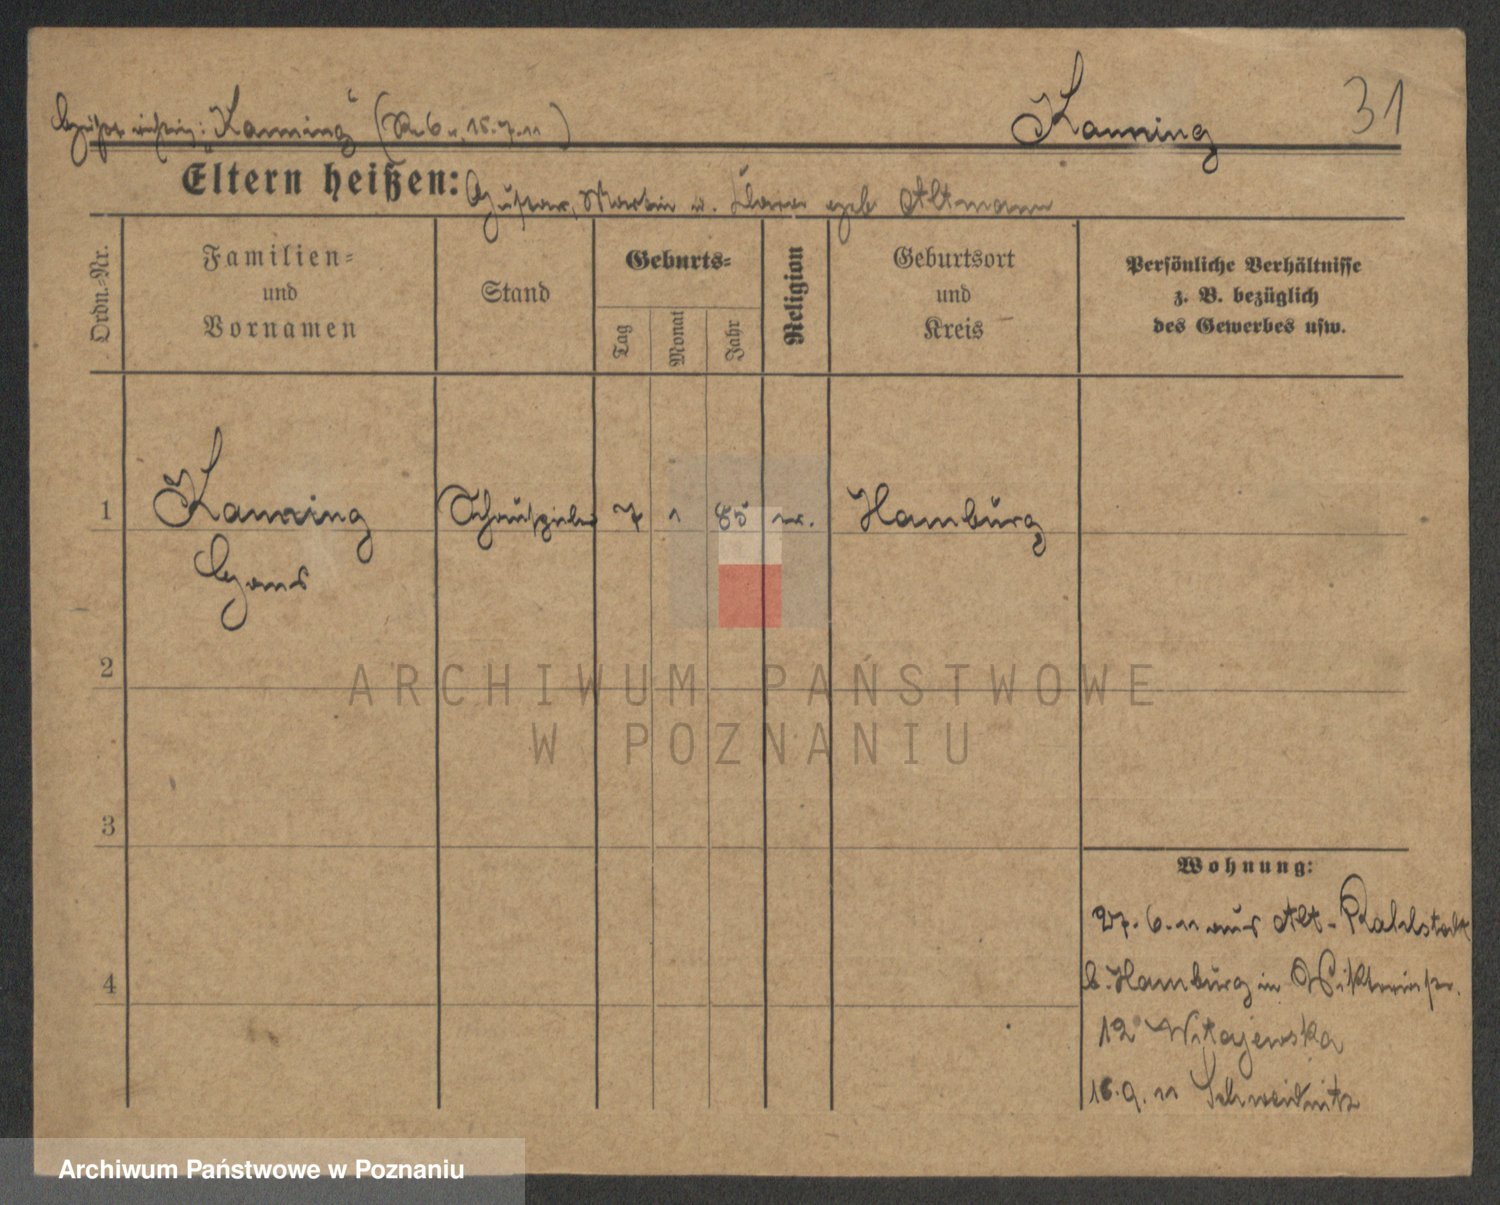 richtig: "Kanning" 15. 7. 11)
Kanning
31
Eltern heißen: Gustav, Martin u. Klara geb Altmann
Ordn.-Nr.
Familien-
und
Vornamen
Stand
Geburts-
Tag
Monat
Jahr
Religion
Geburtsort
und
Kreis
Persönliche Verhältnisse
z. B. bezüglich
des Gewerbes usw.
1
Kanning
Schauspieler
7
1
85
ev.
Hamburg
Hans
2
ARCHIWUM PAŃSTWOWE
W POZNANIU
3
Wohnung:
27. 6. 11 aus Alt-Rahlstedt
b. Hamburg in Viktoriastr.
12 Witajewska
4
9. 11 Schweidnitz
Archiwum Państwowe w Poznaniu